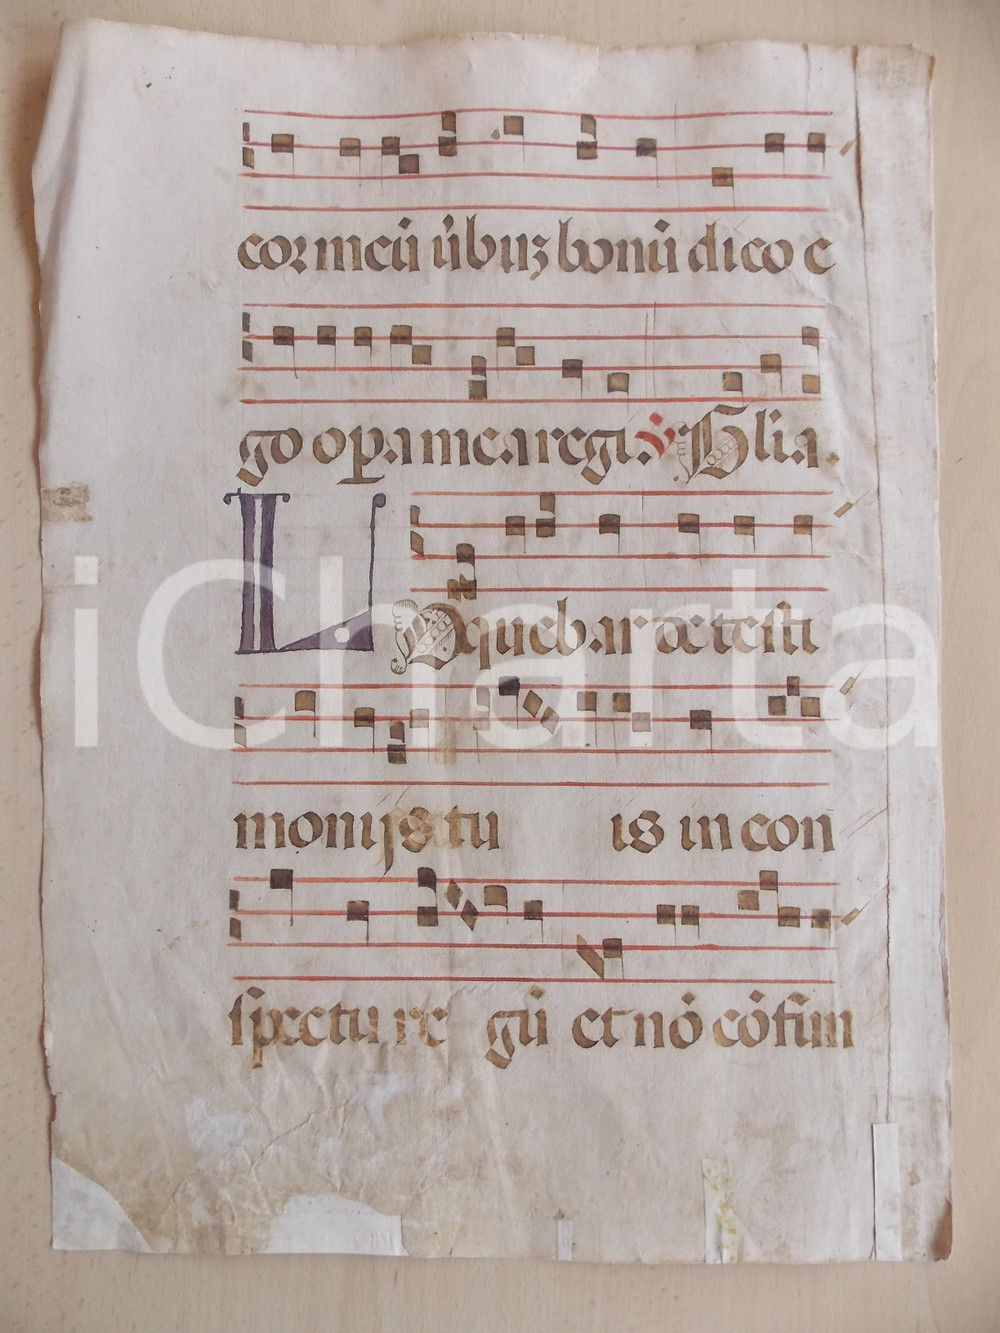 cor meū ūbuz bonū dico e
go opera mea regi. V Glia.
LOquebar de testi
monijs tu is in con
spectu re gū et nō cōfun
iCharta